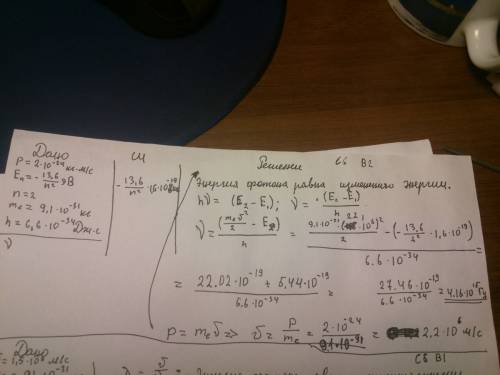 Дано
СИ
Решение
С6 В2
P = 2·10⁻²⁴ кг·м/с
Eₙ = -13,6/n² эВ
n = 2
mₑ = 9,1·10⁻³¹ кг
h = 6,6·10⁻³⁴ Дж·с
ν
-13,6/n² · 1,6·10⁻¹⁹
Энергия фотона равна изменению энергии.
hν = (E₂ - E₁); ν = (E₂ - E₁)/h
ν = (mₑυ²/2 - E₂)/h = (9,1·10⁻³¹·(2,2·10⁶)²/2 - (-13,6/2² · 1,6·10⁻¹⁹))/6.6·10⁻³⁴ =
= (22.02·10⁻¹⁹ + 5,44·10⁻¹⁹)/6.6·10⁻³⁴ = 27.46·10⁻¹⁹/6.6·10⁻³⁴ = 4.16·10¹⁵ Гц
P = mₑυ => υ = P/mₑ = 2·10⁻²⁴/9,1·10⁻³¹ = 2,2·10⁶ м/с
Дано
С6 В1